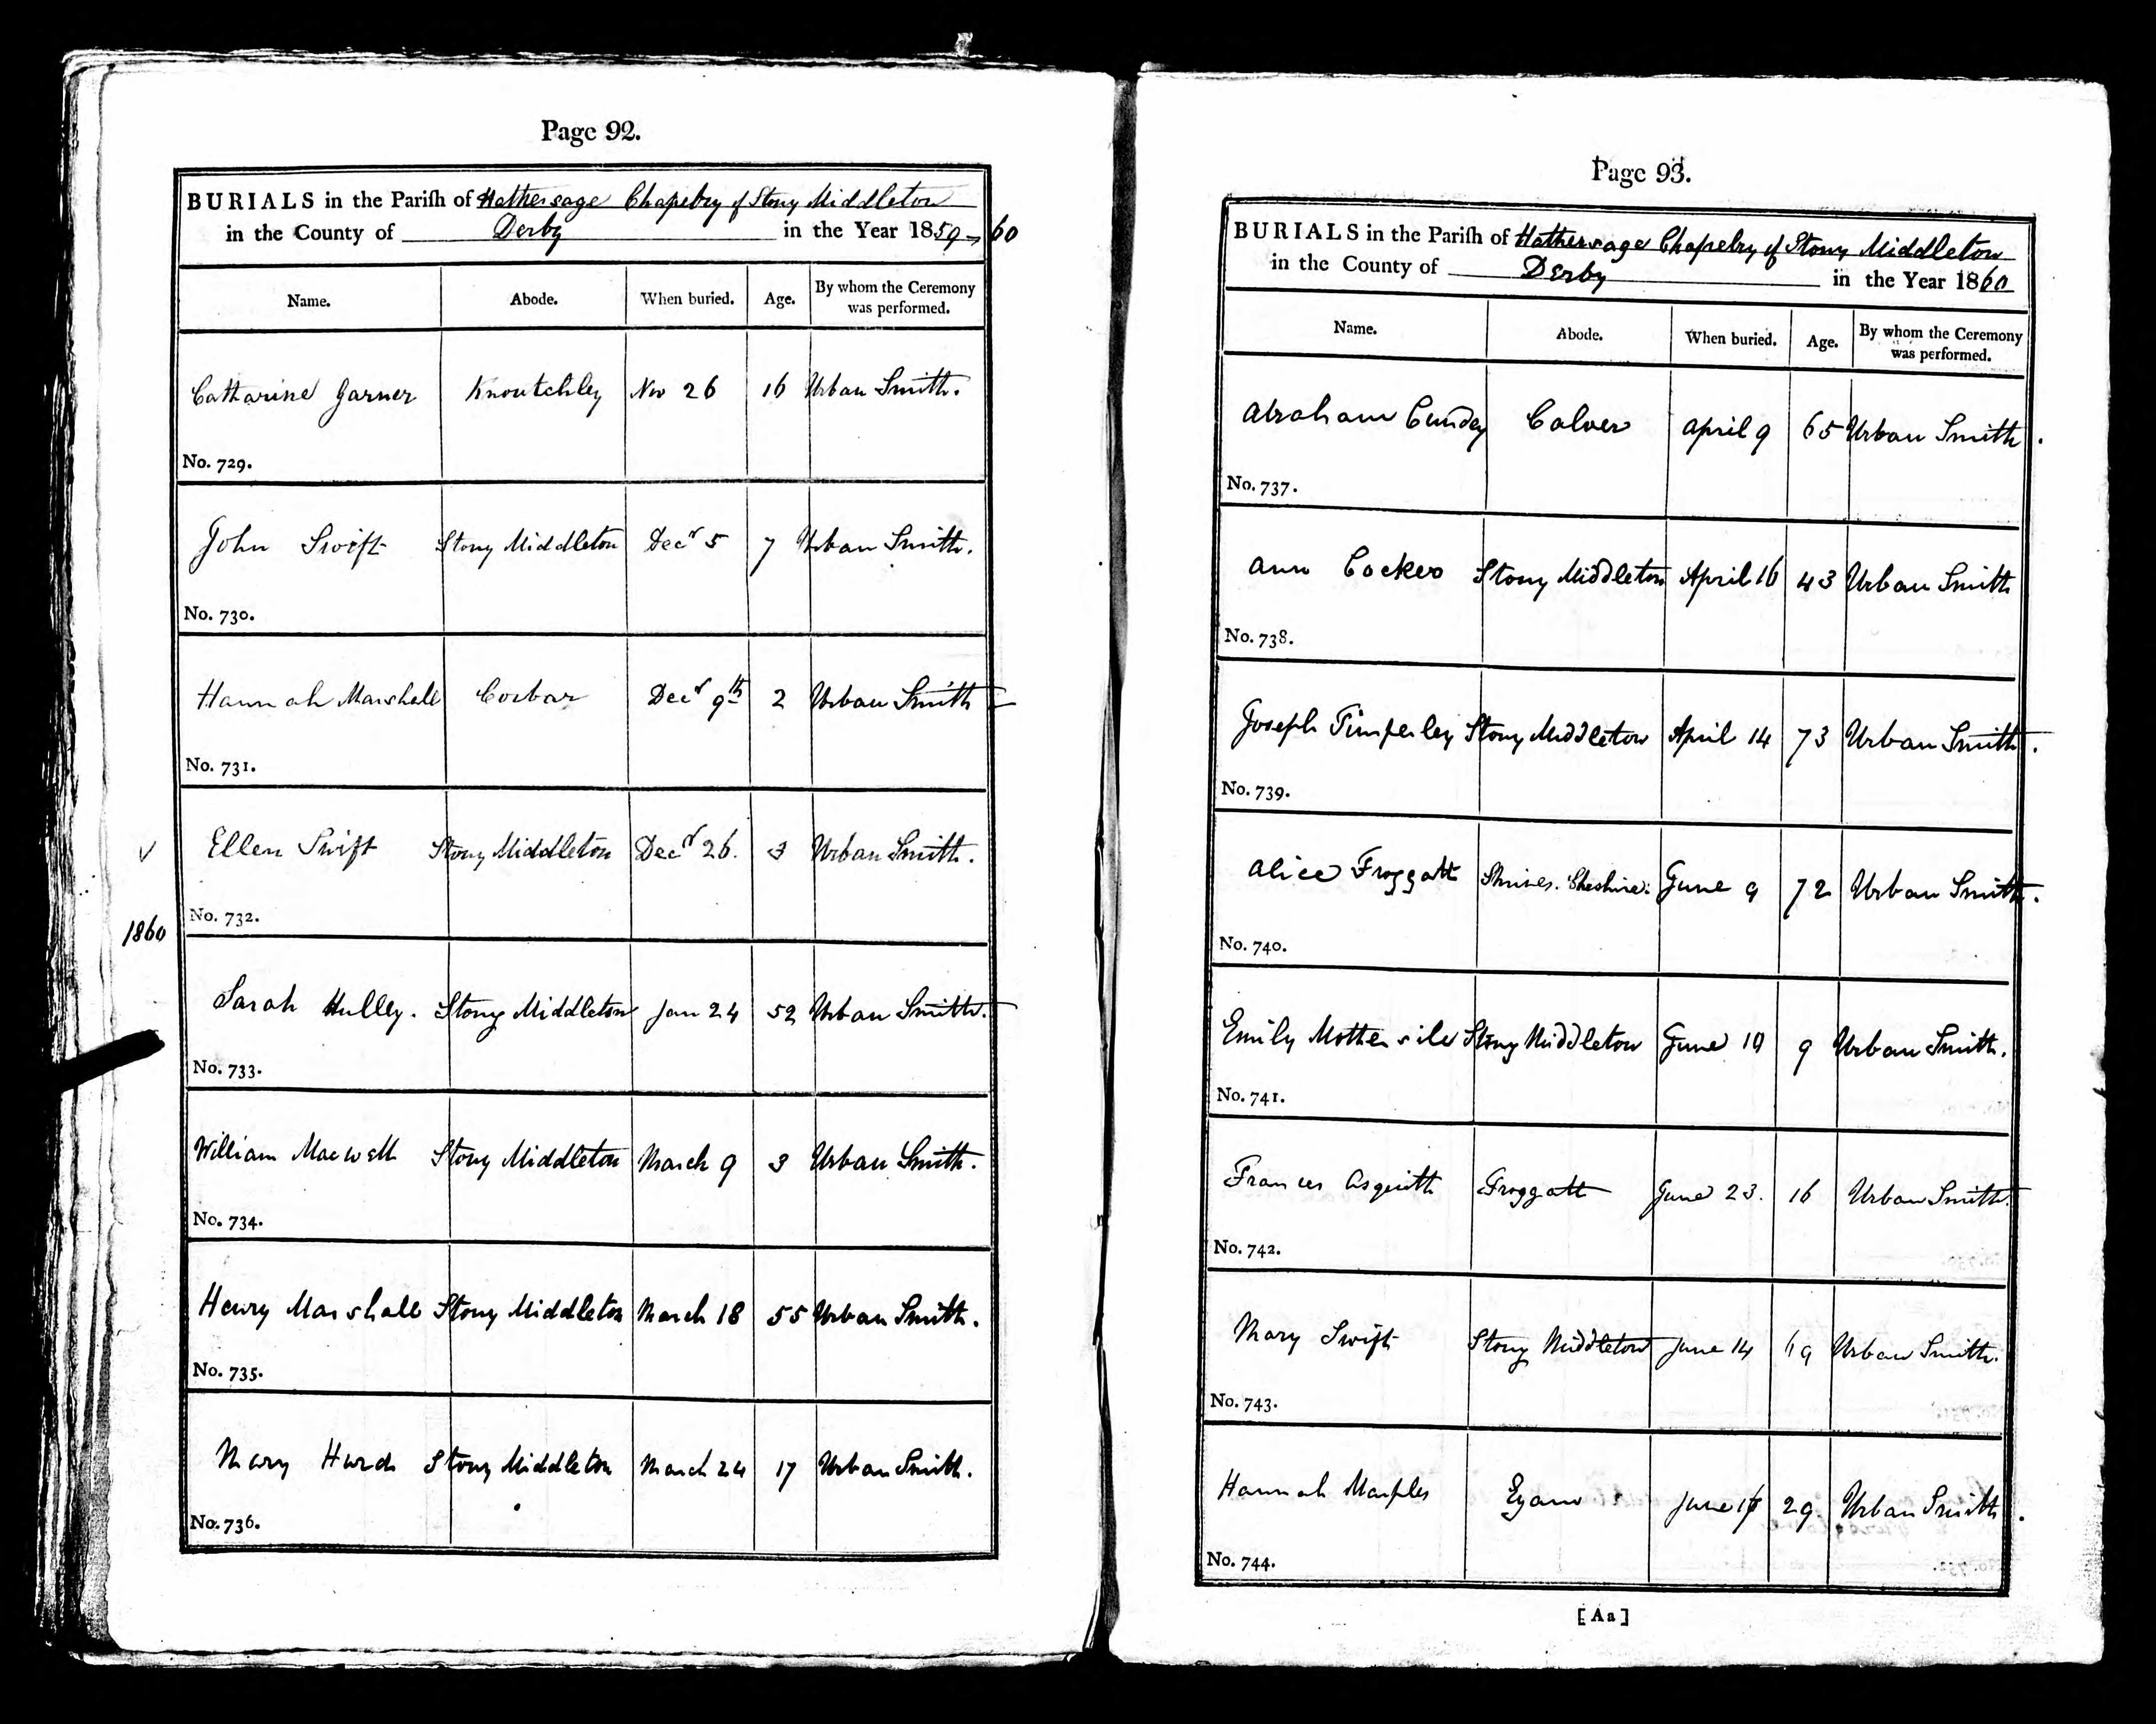 Page 92.
BURIALS in the Pariſh of Hathersage Chapelry of Stony Middleton
in the County of Derby in the Year 1859-60
Name. Abode. When buried. Age. By whom the Ceremony was performed.
Catharine Garner Knoutchley Nov 26 16 Urban Smith.
No. 729.
John Swift Stony Middleton Decr 5 7 Urban Smith.
No. 730.
Hannah Marshall Corbar Decr 9th 2 Urban Smith
No. 731.
Ellen Swift Stony Middleton Decr 26. 3 Urban Smith.
No. 732.
1860
Sarah Hulley. Stony Middleton Jan 24 52 Urban Smith.
No. 733.
William Stony Middleton March 9 3 Urban Smith.
No. 734.
Henry Marshall Stony Middleton March 18 55 Urban Smith.
No. 735.
Mary Stony Middleton March 24 17 Urban Smith.
No. 736.
Page 93.
BURIALS in the Pariſh of Hathersage Chapelry of Stony Middleton
in the County of Derby in the Year 1860
Name. Abode. When buried. Age. By whom the Ceremony was performed.
Abraham Cundey Calver April 9 65 Urban Smith.
No. 737.
Ann Cocker Stony Middleton April 16 43 Urban Smith
No. 738.
Joseph Timperley Stony Middleton April 14 73 Urban Smith.
No. 739.
Alice Froggatt Cheshire. June 9 72 Urban Smith.
No. 740.
Emily Mothersile Stony Middleton June 9 Urban Smith.
No. 741.
Frances Asquith Froggatt June 23. 16 Urban Smith.
No. 742.
Mary Swift Stony Middleton June 14 Urban Smith.
No. 743.
Hannah Marples Eyam June 29. Urban Smith.
No. 744.
[Aa]